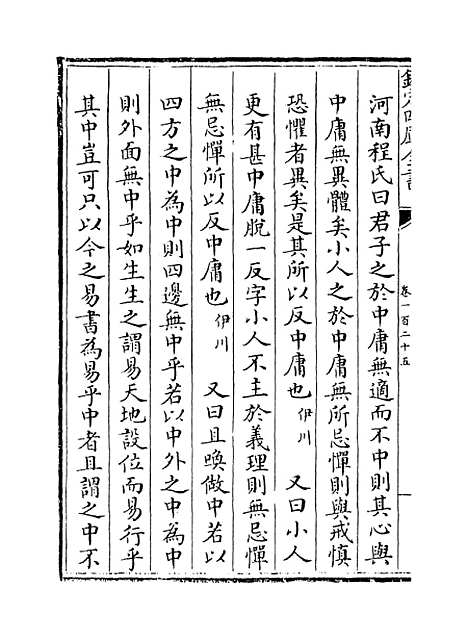 欽定四庫全書
卷一百二十五
河南程氏曰君子之於中庸無適而不中則其心與
中庸無異體矣小人之於中庸無所忌憚則與戒慎
恐懼者異矣是其所以反中庸也 伊川 又曰小人
更有甚中庸脫一反字小人不主於義理則無忌憚
無忌憚所以反中庸也 伊川 又曰且喚做中若以
四方之中為中則四邊無中乎若以中外之中為中
則外面無中乎如生生之謂易天地設位而易行乎
其中豈可只以今之易書為易乎中者且謂之中不